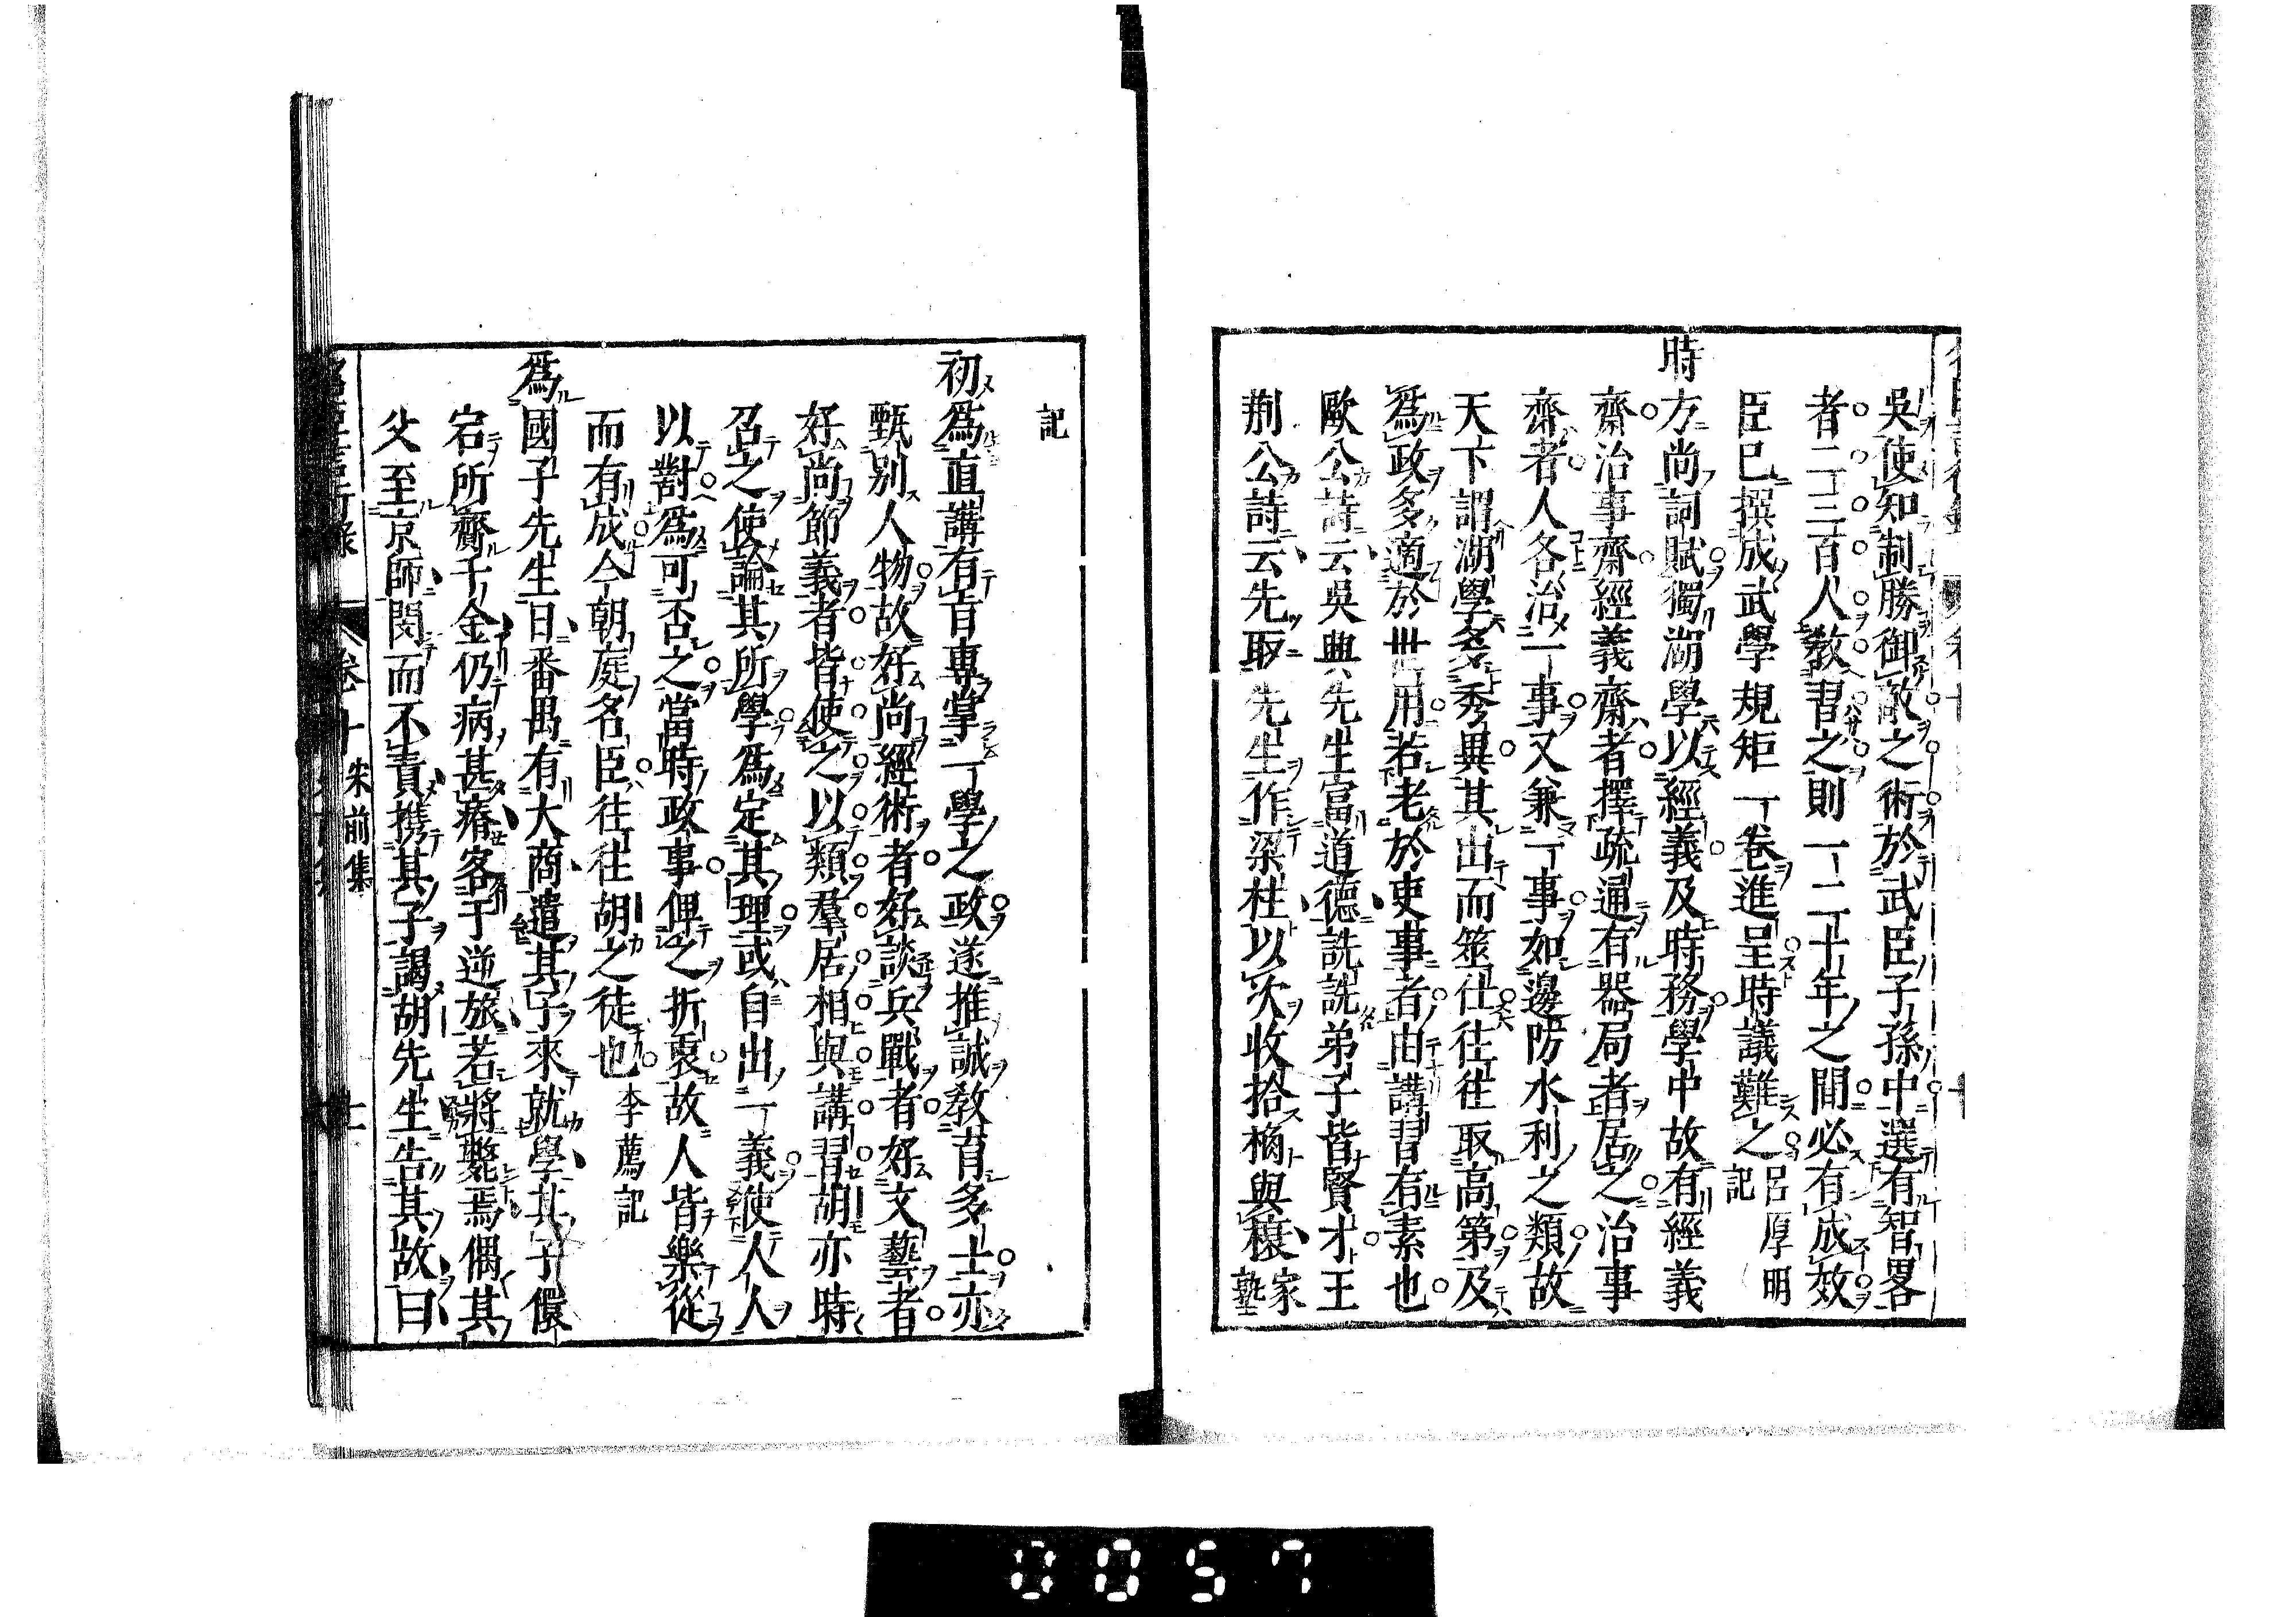 吳使知制勝御敵之術於武臣子孫中選有智畧
者二三百人教習之則一二十年之間必有成效
臣已撰成武學規矩一卷進呈時議難之呂厚明記
時方尚詞賦獨湖學以經義及時務學中故有經義
齋治事齋經義齋者擇疏通有器局者居之治事
齋者人各治一事又兼一事如邊防水利之類故
天下謂湖學多秀異其出而筮仕往往取高第及
爲政多適於世用若老於吏事者由講習有素也
歐公詩云吳興先生富道德詵詵弟子皆賢才王
荆公詩云先取先生作梁柱以次收拾桷與榱家塾
記
初爲直講有旨專掌一學之政遂推誠教育多士亦
甄别人物故好尚經術者好談兵戰者好文藝者
好尚節義者皆使之以類羣居相與講習胡亦時
召之使論其所學爲定其理或自出一義使人人
以對爲可否之當時政事俾之折衷故人皆樂從
而有成今朝庭名臣往往胡之徒也李廌記
爲國子先生日番禺有大商遣其子來就學其子儇
宕所齎千金仍病甚瘠客于逆旅若將斃焉偶其
父至京師閔而不責携其子謁胡先生告其故曰
卷十
宋前集
十一
0057